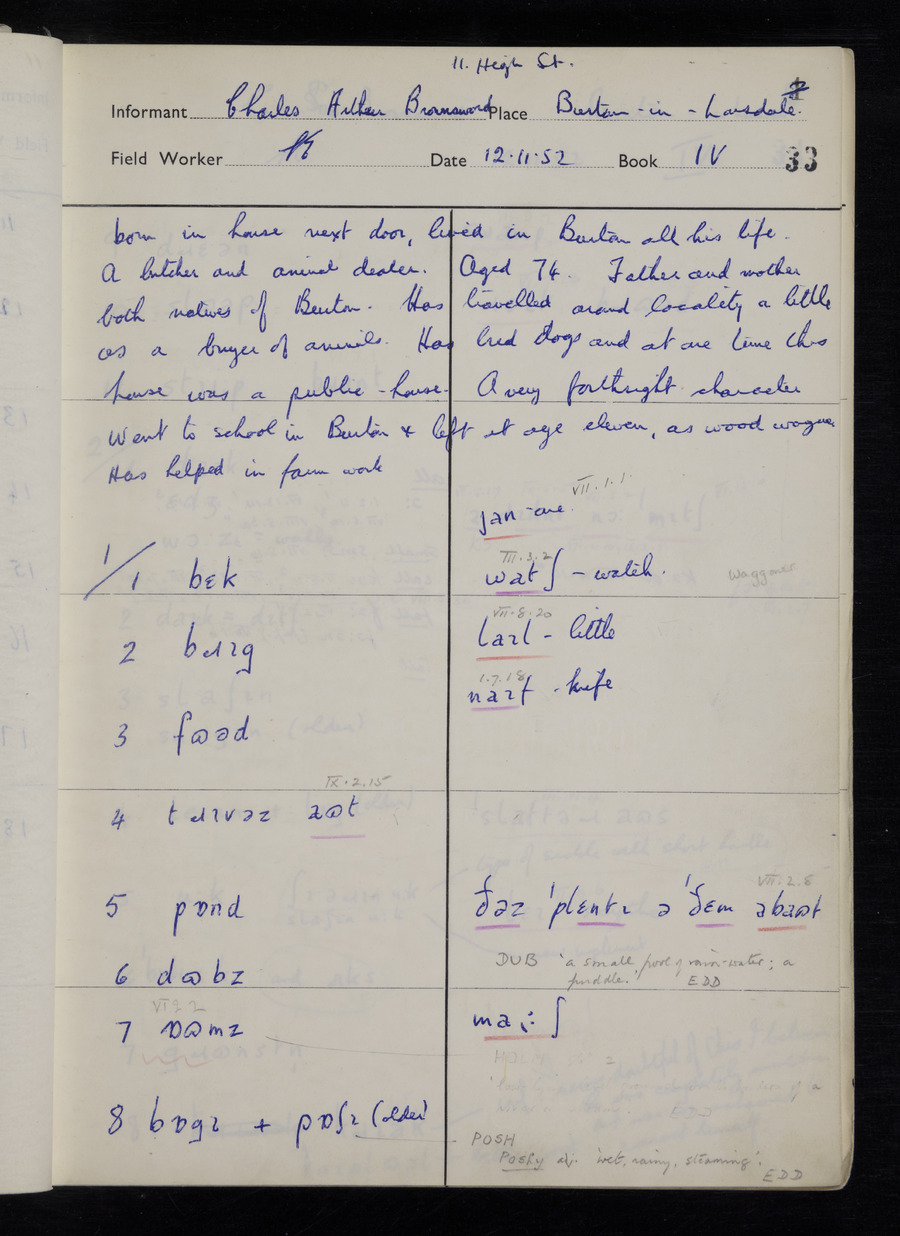 11. High St.
Informant Charles Arthur Brownsword Place Burton-in-Lonsdale.
Field Worker Date 12.11.52 Book IV 33
born in house next door, lived in Burton all his life.
A butcher and animal dealer. Aged 74. Father and mother
both natives of Burton. Has travelled around locality a little
as a buyer of animals. Has bred dogs and at one time this
house was a public-house. A very forthright character
Went to school in Burton & left at age eleven, as wood
Has helped in farm work
VII.1.1.
jan - one.
1/1 bɛk
III.3.2
watʃ - watch.
Waggoner
VII.8.20
laɪl - little
2 bɹɪg
1.7.18
naɪf - knife
3 fɷəd
IX.2.15
4 tɹɪvəz aɷt
5 pɒnd
VII.2.8
ðəz ˈplɛntɪ ə ˈðɛm əbaɷt
6 dɷbz
DUB 'a small pool of rain-water; a
puddle. EDD
VI 2 2
7 ɒɷmz
maːʃ
8 bɒgɪ + pɒʃɪ (older)
POSH
Poshy aj. 'wet, rainy, steaming'.
EDD